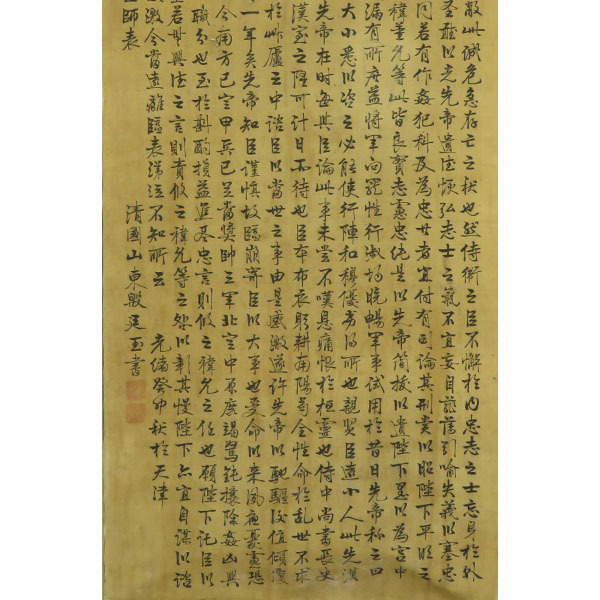 此誠危急存亡之秋也然侍衛之臣不懈於內忠志之士忘身於外
聖聽以光先帝遺德恢弘志士之氣不宜妄自菲薄引喻失義以塞忠
同若有作姦犯科及為忠善者宜付有司論其刑賞以昭陛下平明之
褘董允等此皆良實志慮忠純是以先帝簡拔以遺陛下愚以為宮中
漏有所廣益將軍向寵性行淑均曉暢軍事試用於昔日先帝稱之曰
大小悉以咨之必能使行陣和穆優劣得所也親賢臣遠小人此先漢
先帝在時每與臣論此事未嘗不嘆息痛恨於桓靈也侍中尚書長史
漢室之隆可計日而待也臣本布衣躬耕南陽苟全性命於亂世不求
於草廬之中諮臣以當世之事由是感激遂許先帝以馳驅後值傾覆
一年矣先帝知臣謹慎故臨崩寄臣以大事也受命以來夙夜憂慮恐
今南方已定甲兵已足當獎帥三軍北定中原庶竭駑鈍攘除姦凶興
職分也至於斟酌損益進盡忠言則攸之褘允之任也願陛下託臣以
若無興德之言則責攸之褘允等之咎以彰其慢陛下亦宜自謀以諮
激今當遠離臨表涕泣不知所云 光緒癸卯秋於天津
師表 清國山東殷廷玉書